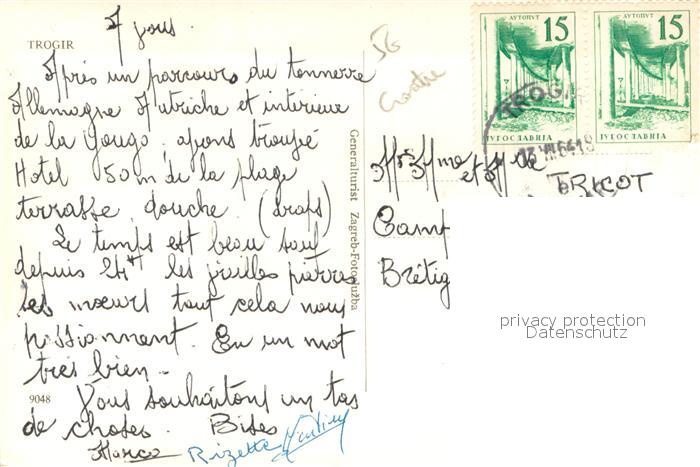 7 jours.
TROGIR
Après un parcours du tonnerre
Allemagne Autriche et interieure
de la Yougo. avons trouvé
Hotel 50 m de la plage
terrasse douche (draps)
Le temps est beau sauf
depuis 24H les vieilles pierres
les mœurs tout cela nous
passionnent. En un mot
très bien.
Vous souhaitons un tas
de choses. Bises
9048
Marco Rizette
Generalturist Zagreb-Fotoslužba
56
Croatie
АУТОПУТ 15
ЈУГОСЛАВИЈА
АУТОПУТ 15
JУГОСЛАВИЈА
TROGIR
Mr Mme et Mlle
TRICOT
Camp
Brétig
privacy protection
Datenschutz